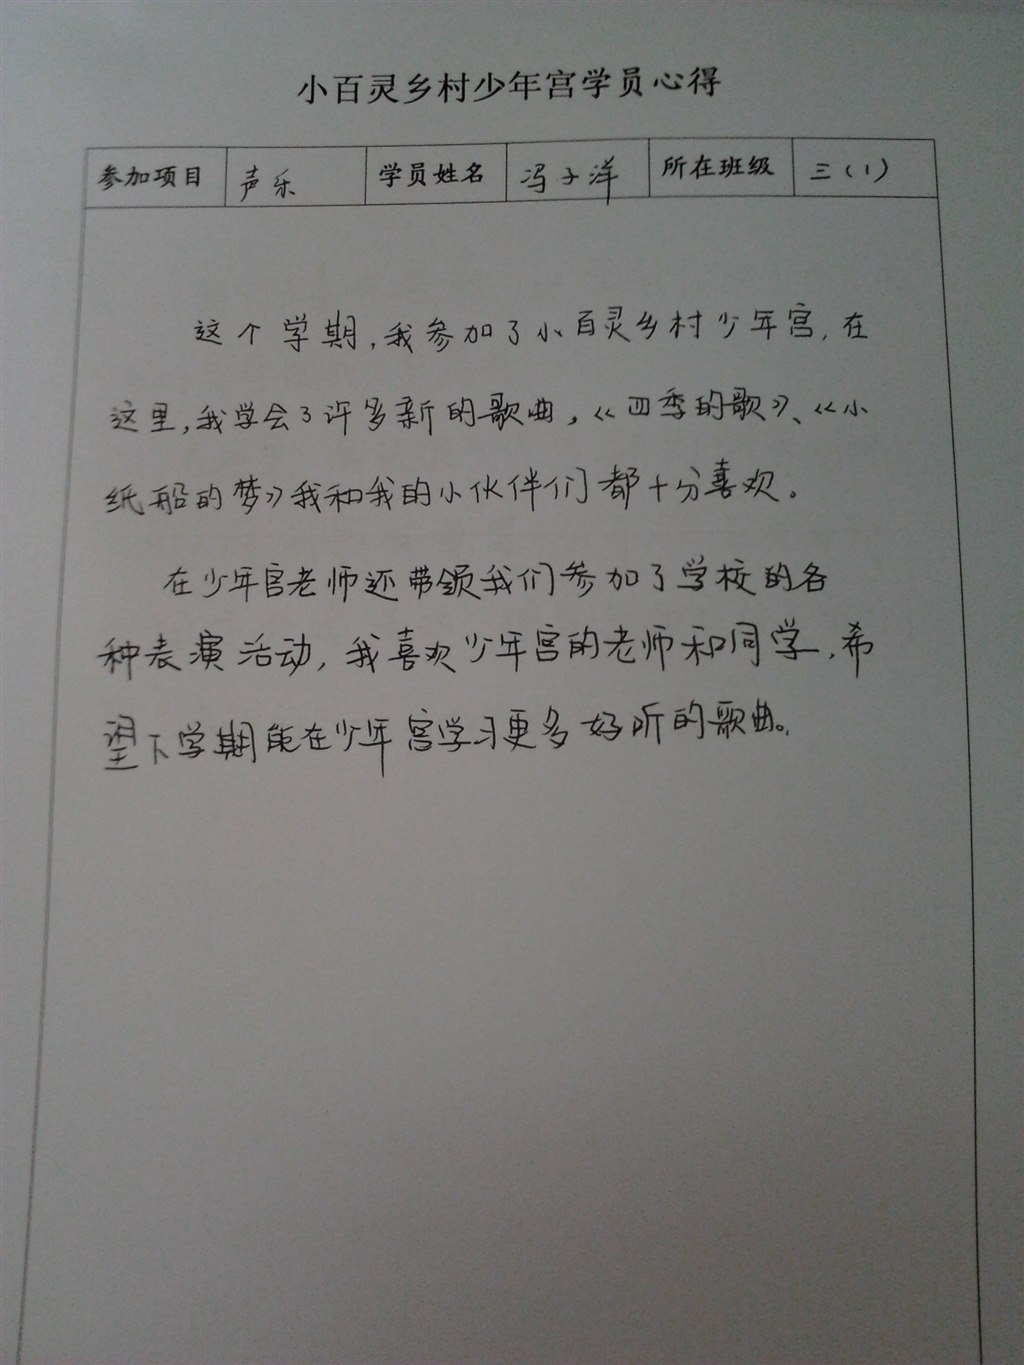 小百灵乡村少年宫学员心得
参加项目 声乐 学员姓名 冯子洋 所在班级 三（1）
这个学期，我参加了小百灵乡村少年宫，在
这里，我学会了许多新的歌曲，《四季的歌》、《小
纸船的梦》我和我的小伙伴们都十分喜欢。
在少年宫老师还带领我们参加了学校的各
种表演活动，我喜欢少年宫的老师和同学，希
望下学期能在少年宫学习更多好听的歌曲。